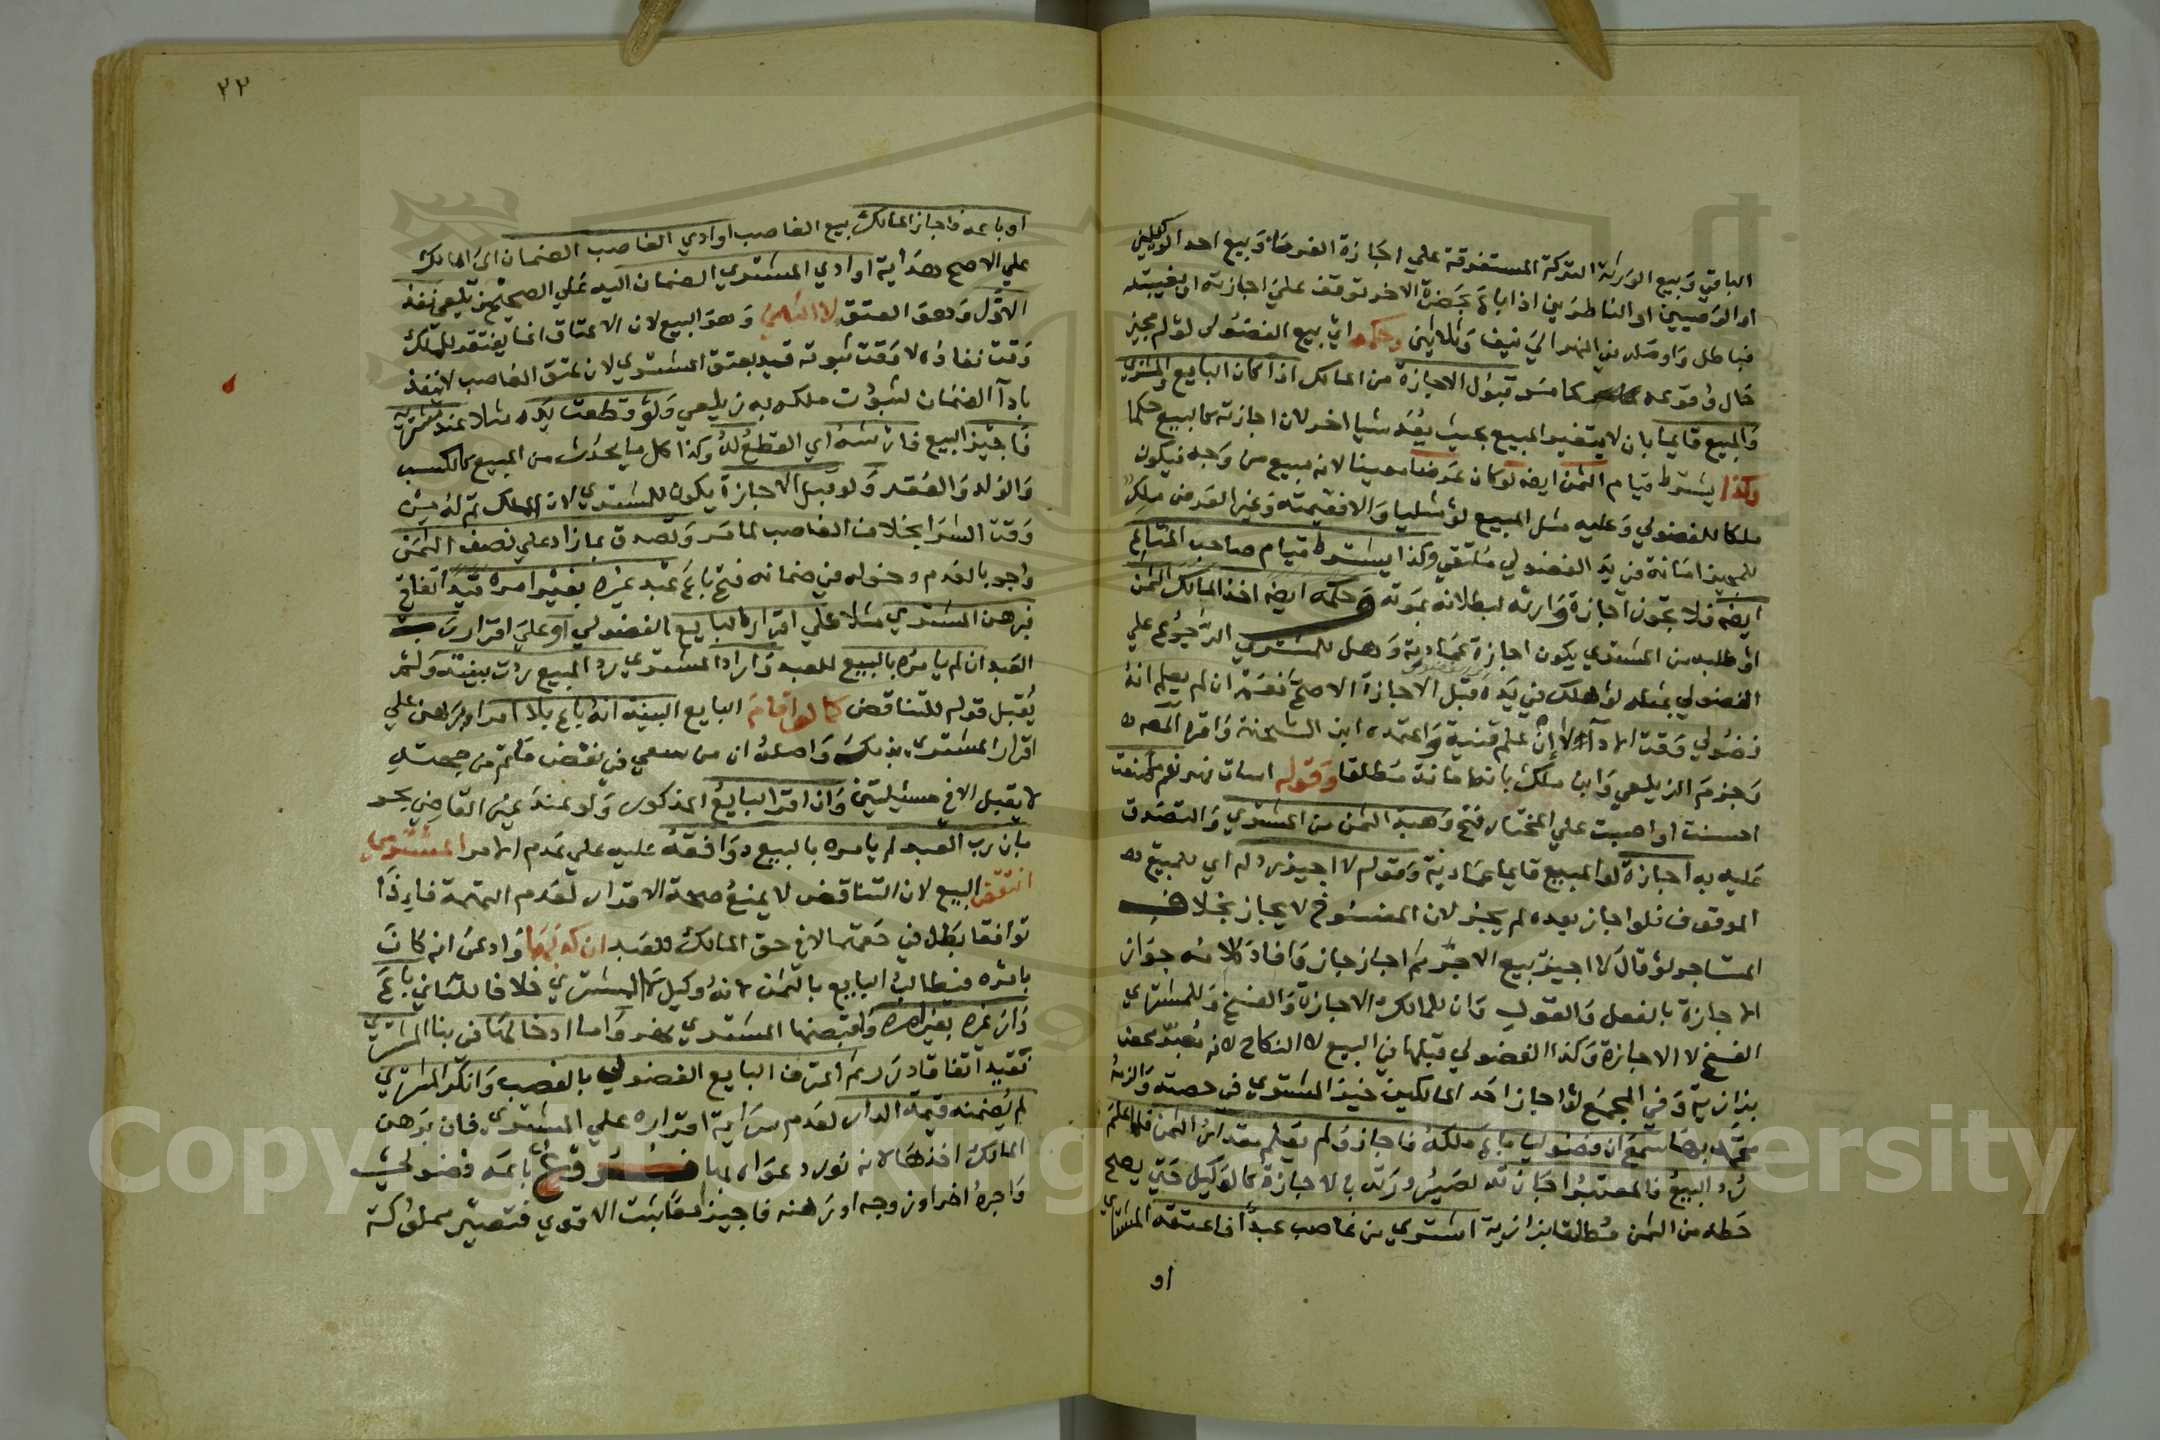 الباقي وبيع الورثة التركة المستغرقة علي اجازة الغرماء وبيع احد الوكيلين
او الوصيين او الناظرين اذا باع بحضرة الاخر توقف علي اجازته او بغيبته
فباطل واوصله في النهر الي نيف وثلاثين وحكمه اي بيع الفضولي لو له مجيز
حال وقوعه كما مر قبول الاجازة من المالك اذا كان البايع والمشتري
والمبيع قايما بان لا يتغير المبيع بحيث يعد شيا اخر لان اجازته كالبيع حكما
وكذا يشترط قيام الثمن ايضه لو كان عرضا معينا لانه مبيع من وجه فيكون
ملكا للفضولي وعليه مثل المبيع لو مثليا والا فقيمته وغير العرض ملك
للمجيز امانة في يد الفضولي ملتقي وكذا يشترط قيام صاحب المتاع
ايضه فلا تجوز اجازة وارثه لبطلانه بموته وحكمه ايضه اخذ المالك الثمن
او طلبه من المشتري يكون اجازة عمادية وهل للمشتري الرجوع علي
الفضولي بمثله لو هلك في يده قبل الاجازة الاصح نعم ان لم يعلم انه
فضولي وقت الادا لا ان علم قنية واعتمده ابن الشحنة واقره المصه
وجزم الزيلعي وابن ملك بانه امانة مطلقا وقوله اسات نهر بئس ما صنعت
احسنت او اصبت علي المختار فتح وهبة الثمن من المشتري والتصدق
عليه به اجازة لو المبيع قايما عمادية وقوله لا اجيز رد له اي للمبيع
الموقوف فلو اجاز بعده لم يجز لان المفسوخ لا يجاز بخلاف
المستاجر لو قال لا اجيز بيع الاجر ثم اجاز جاز وافاد كلامه جواز
الاجازة بالفعل والقول وان للمالك الاجازة والفسخ وللمشتري
الفسخ لا الاجازة وكذا الفضولي قبلها في البيع لا النكاح لانه معبر محض
بزازية وفي المجمع لو اجاز احد المالكين خير المشتري في حصته والزمه
محمد بها سمع ان فضوليا باع ملكه فاجاز ولم يعلم مقدار الثمن فلما علم
رد البيع فالمعتبر اجازته لصيرورته بالاجازة كالوكيل حتي يصح
حطه من الثمن مطلقا بزازية اشتري من غاصب عبدا فاعتقه المشتري
او
٢٢
او باعه فاجاز المالك بيع الغاصب او ادي الغاصب الضمان الي المالك
علي الاصح هداية او ادي المشتري الضمان اليه علي الصحيح زيلعي نفذ
الاول وهو العتق لا الثاني وهو البيع لان الاعتاق انما يفتقر للملك
وقت نفاذه لا وقت ثبوته قيد بعتق المشتري لان عتق الغاصب لا ينفذ
بادآ الضمان لثبوت ملكه به زيلعي ولو قطعت يده مثلا عند مشتريه
فاجيز البيع فارشه اي القطع له وكذا كل ما يحدث من المبيع كالكسب
والولد والعقر ولو قبل الاجازة يكون للمشتري لان الملك تم له من
وقت الشرا بخلاف الغاصب لما مر وتصدق بما زاد علي نصف الثمن
وجوبا لعدم دخوله في ضمانه فتح باع عبد غيره بغير امره قيد اتفاقي
فبرهن المشتري مثلا علي اقرار البايع الفضولي او علي اقرار رب
العبد ان لم يامره بالبيع للعبد واراد المشتري رد المبيع ردت بينته ولم
يقبل قوله للتناقض كما لو اقام البايع البينة انه باع بلا امر او برهن علي
اقرار المشتري بذلك واصله ان من سعي في نقض ما تم من جهته
لا يقبل الا في مسئلتين وان اقر البايع المذكور ولو عند غير القاضي بحر
بان رب العبد لم يامره بالبيع ووافقه عليه علي عدم الامر المشتري
انتقض البيع لان التناقض لا يمنع صحة الاقرار لعدم التهمة فاذا
توافقا بطل في حقهما لا في حق المالك للعبد ان كذبهما وادعي انه كان
بامره فيطالب البايع بالثمن لانه وكيل لا المشتري خلافا للثاني باع
دار غيره بغير امره واقبضها المشتري نهر واما ادخالها في بنا المشتري
فقيد اتفاقي درر ثم اعترف البايع الفضولي بالغصب وانكر المشتري
لم يضمنه قيمة الدار لعدم سراية اقراره علي المشتري فان برهن
المالك اخذها لانه نور دعواه بها فروع باعه فضولي
واجره اخر او زوجه او رهنه فاجيزا معا ثبت الاقوي فتصير مملوكة
Copyright © King Saud University